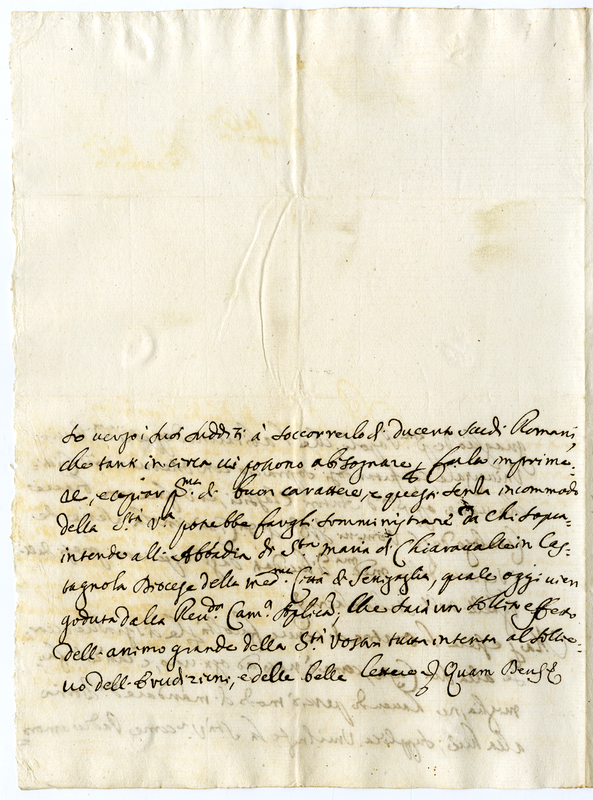 to verso i suoi sudditi à soccorrerlo di ducento scudi Romani,
che tanti in circa vi possono abisognare p farla imprime-
re, e copiar pma di buon carattere, e questi senza incommodo
della Sta Va potrebbe fargli somministrare da chi sopra-
intende all' Abbadia di Sta Maria di Chiaravalle in Cas-
tagnola Diocese della medma Città di Senigaglia, quale oggi vien
goduta dalla Revda Cama Aplica; che sarà un solito effetto
dell' animo grande della Sta Vostra tutta intenta al sollie-
vo dell' Erudizioni, e delle belle lettere Quam Deus